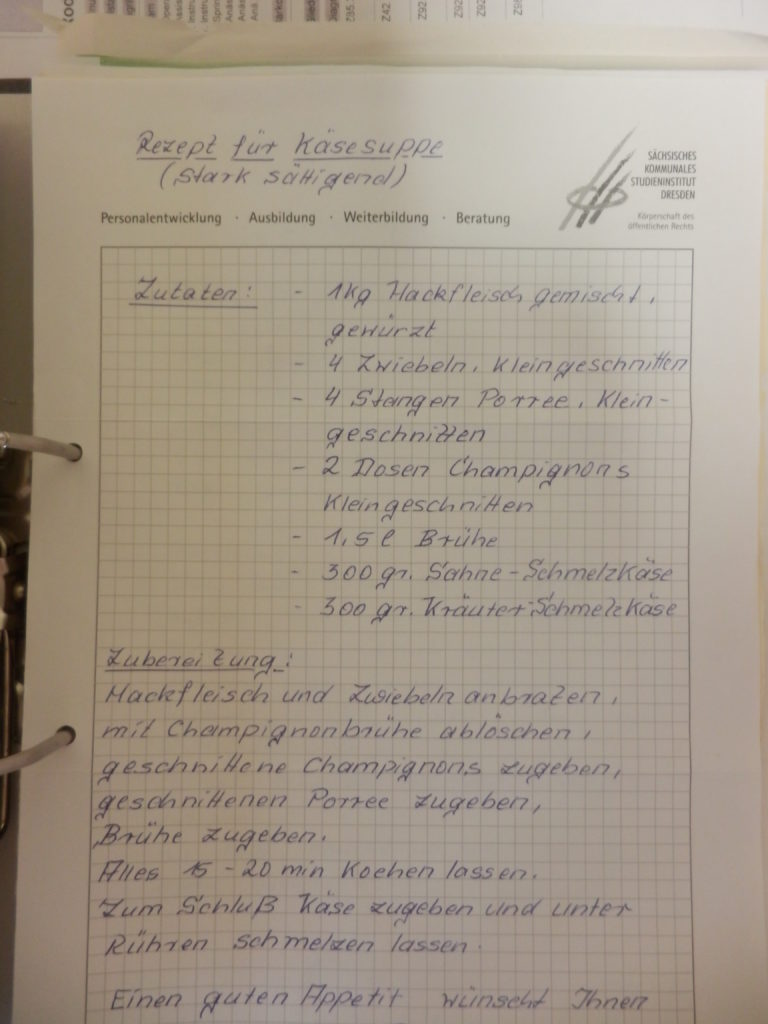 Rezept für Käsesuppe
(stark sättigend)
SÄCHSISCHES
KOMMUNALES
STUDIENINSTITUT
DRESDEN
Körperschaft des
öffentlichen Rechts
Personalentwicklung · Ausbildung · Weiterbildung · Beratung
Zutaten: - 1kg Hackfleisch gemischt,
gewürzt
- 4 Zwiebeln, kleingeschnitten
- 4 Stangen Porree, klein-
geschnitten
- 2 Dosen Champignons
kleingeschnitten
- 1,5 l Brühe
- 300 gr. Sahne-Schmelzkäse
- 300 gr. Kräuter-Schmelzkäse
Zubereitung:
Hackfleisch und Zwiebeln anbraten,
mit Champignonbrühe ablöschen,
geschnittene Champignons zugeben,
geschnittenen Porree zugeben,
Brühe zugeben.
Alles 15 - 20 min kochen lassen.
Zum Schluß Käse zugeben und unter
Rühren schmelzen lassen.
Einen guten Appetit wünscht Ihnen